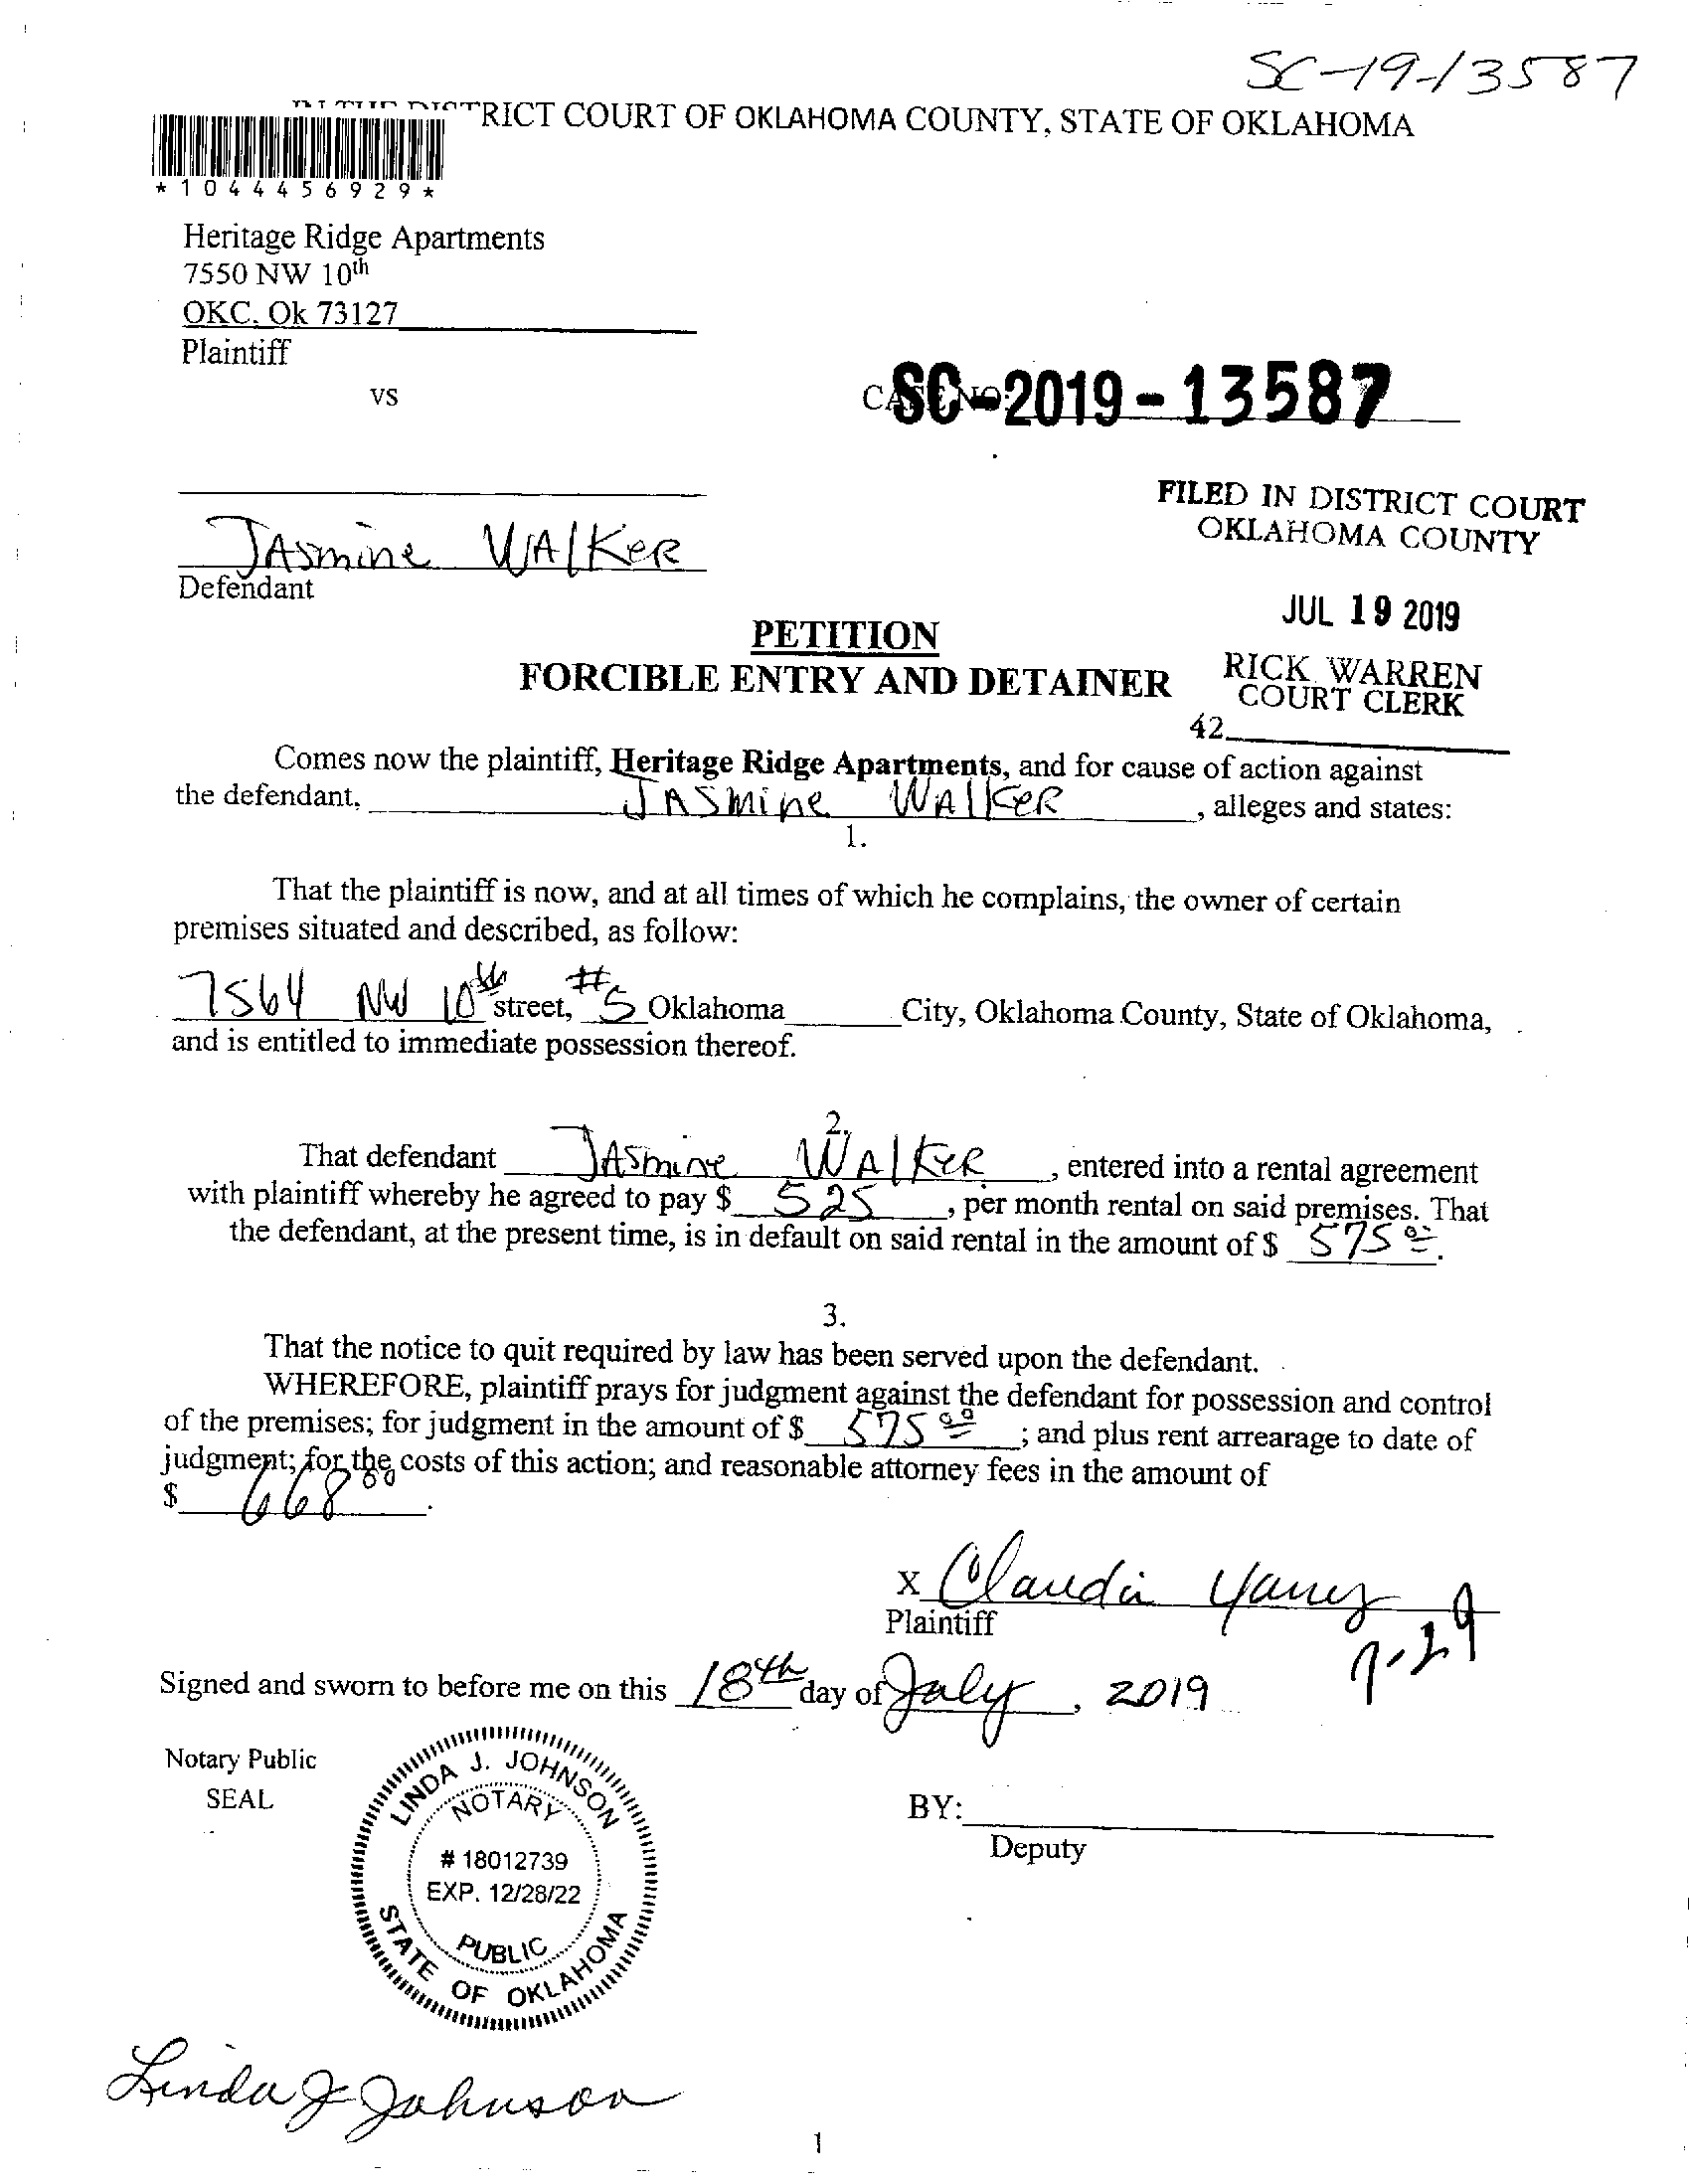 SC-19-13587
RICT COURT OF OKLAHOMA COUNTY, STATE OF OKLAHOMA
*1044456929*
Heritage Ridge Apartments
7550 NW 10th
OKC, Ok 73127
Plaintiff
vs
SC-2019-13587
FILED IN DISTRICT COURT
OKLAHOMA COUNTY
JAsmine WAlKeR
Defendant
JUL 19 2019
PETITION
FORCIBLE ENTRY AND DETAINER
RICK WARREN
COURT CLERK
42
Comes now the plaintiff, Heritage Ridge Apartments, and for cause of action against
the defendant, JASmine WAlKeR, alleges and states:
1.
That the plaintiff is now, and at all times of which he complains, the owner of certain
premises situated and described, as follow:
7564 NW 10th street, #5 Oklahoma City, Oklahoma County, State of Oklahoma,
and is entitled to immediate possession thereof.
2.
That defendant JAsmine WAlKeR, entered into a rental agreement
with plaintiff whereby he agreed to pay $ 525, per month rental on said premises. That
the defendant, at the present time, is in default on said rental in the amount of $ 575 00.
3.
That the notice to quit required by law has been served upon the defendant.
WHEREFORE, plaintiff prays for judgment against the defendant for possession and control
of the premises; for judgment in the amount of $ 575 00; and plus rent arrearage to date of
judgment; for the costs of this action; and reasonable attorney fees in the amount of
$ 668 00.
X Claudia Yanez
Plaintiff
7-29
Signed and sworn to before me on this 18th day of July, 2019
Notary Public
SEAL
LINDA J. JOHNSON
NOTARY
# 18012739
EXP. 12/28/22
PUBLIC
STATE OF OKLAHOMA
BY:
Deputy
Linda J Johnson
1